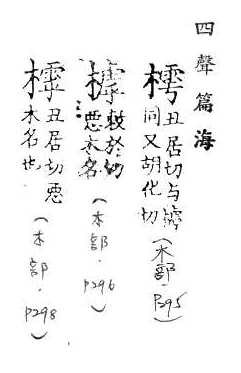 四聲篇海
樗丑居切与
同又胡化切(木部.P295)
敕於切
惡木名(木部.P296)
丑居切惡
木名也(木部.P298)